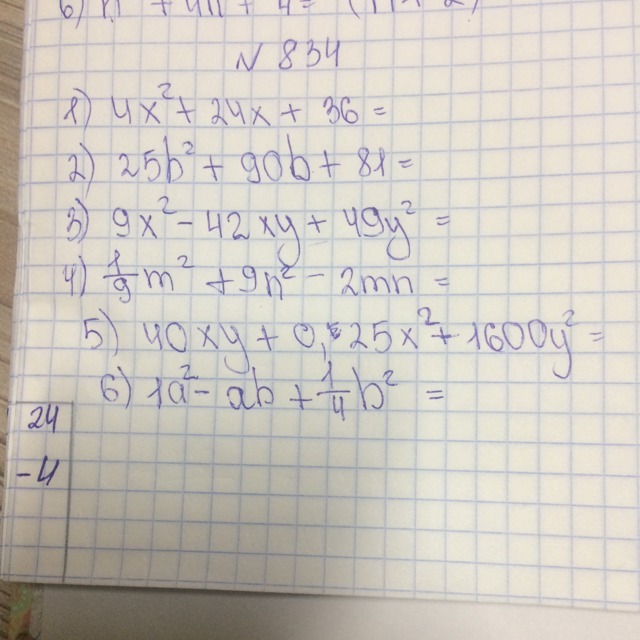 6) n² + 4n + 4 = (n + 2)
N 834
1) 4x² + 24x + 36 =
2) 25b² + 90b + 81 =
3) 9x² - 42xy + 49y² =
4) 1/9 m² + 9n² - 2mn =
5) 40xy + 0,25x² + 1600y² =
6) 1a² - ab + 1/4 b² =
24
-4